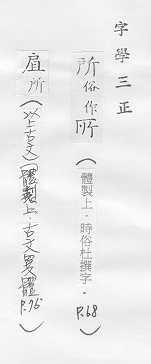 字學三正
所俗作㪽(體製上·時俗杜撰字·P.68)
㞐所(以上古文)(體製上·古文異體P.76)